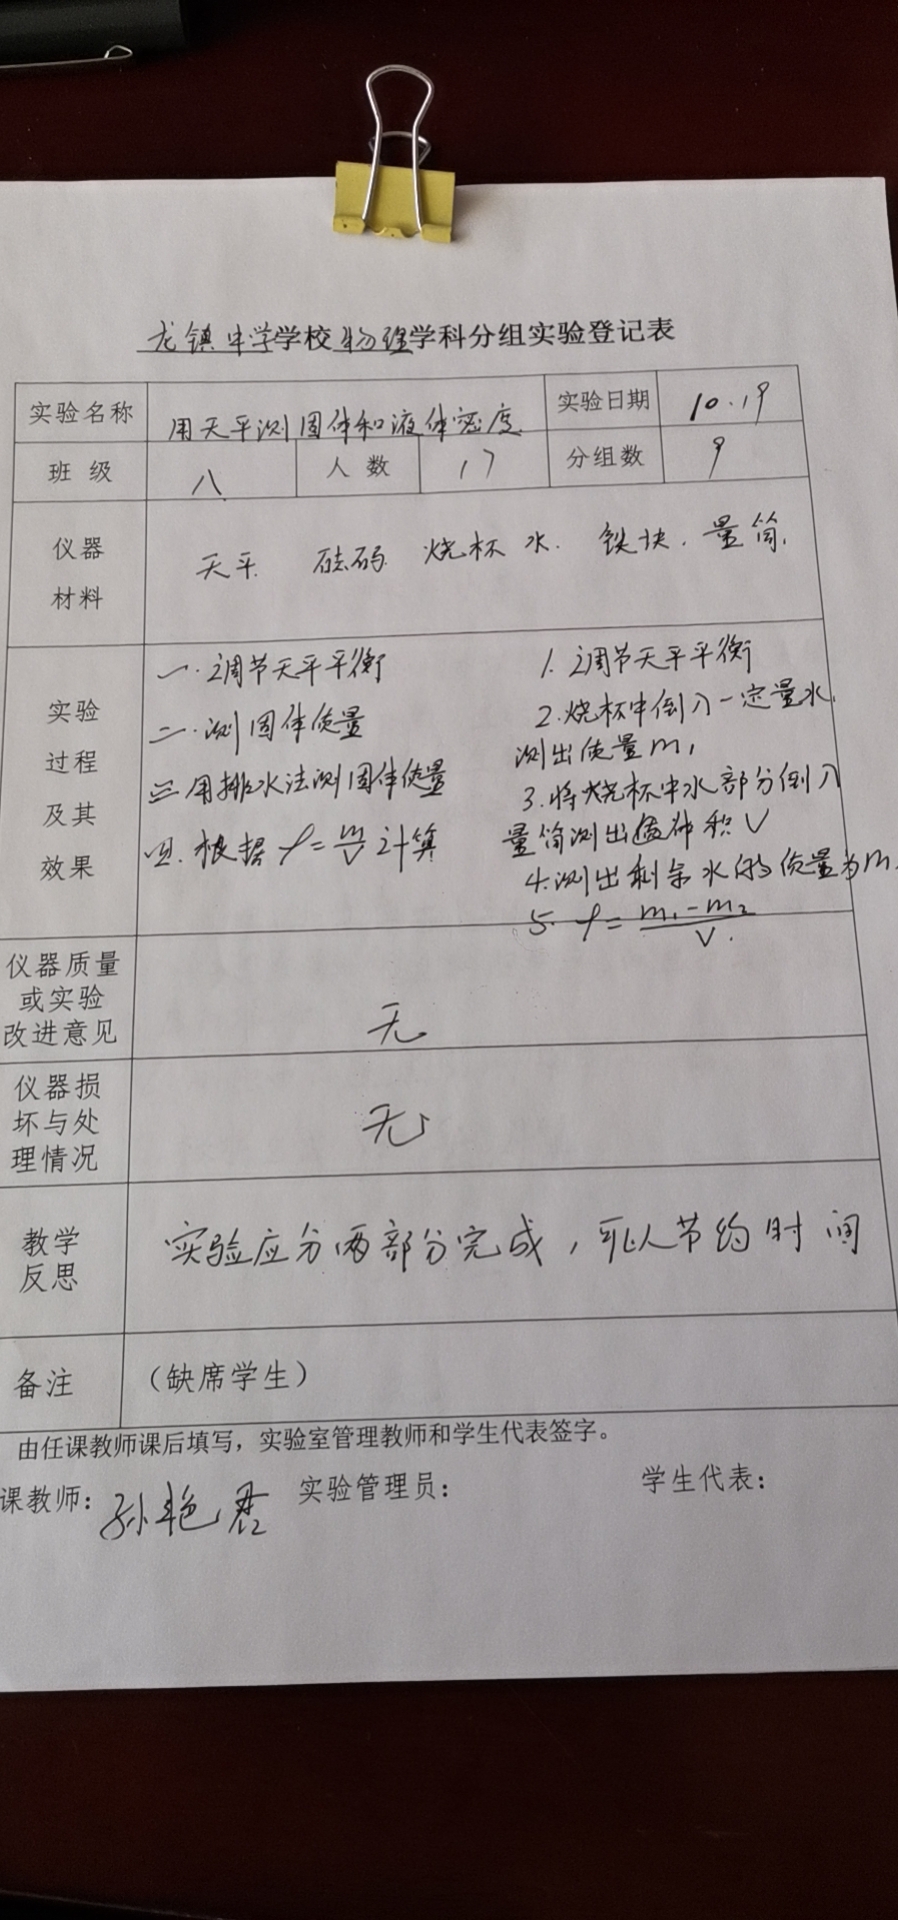 龙镇中学学校物理学科分组实验登记表
实验名称 用天平测固体和液体密度 实验日期 10.19
班级 八 人数 17 分组数 9
仪器材料 天平 砝码 烧杯 水. 铁块. 量筒.
实验过程及其效果
一.调节天平平衡
二.测固体质量
三用排水法测固体质量
四.根据ρ=m/V计算
1.调节天平平衡
2.烧杯中倒入一定量水.
测出质量m₁
3.将烧杯中水部分倒入
量筒测出体积V
4.测出剩余水的质量为m
5.ρ=(m₁-m₂)/V.
仪器质量
或实验
改进意见
无
仪器损
坏与处
理情况
无
教学
反思
实验应分两部分完成,可以节约时间
备注 (缺席学生)
由任课教师课后填写,实验室管理教师和学生代表签字。
课教师: 孙艳君 实验管理员: 学生代表: